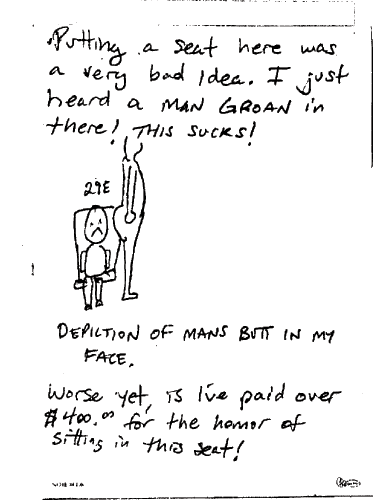 Putting a seat here was
a very bad idea. I just
heard a MAN GROAN in
there! THIS SUCKS!
29E
DEPICTION OF MANS BUTT IN MY
FACE.
Worse yet, is I've paid over
$400.00 for the honor of
sitting in this seat!